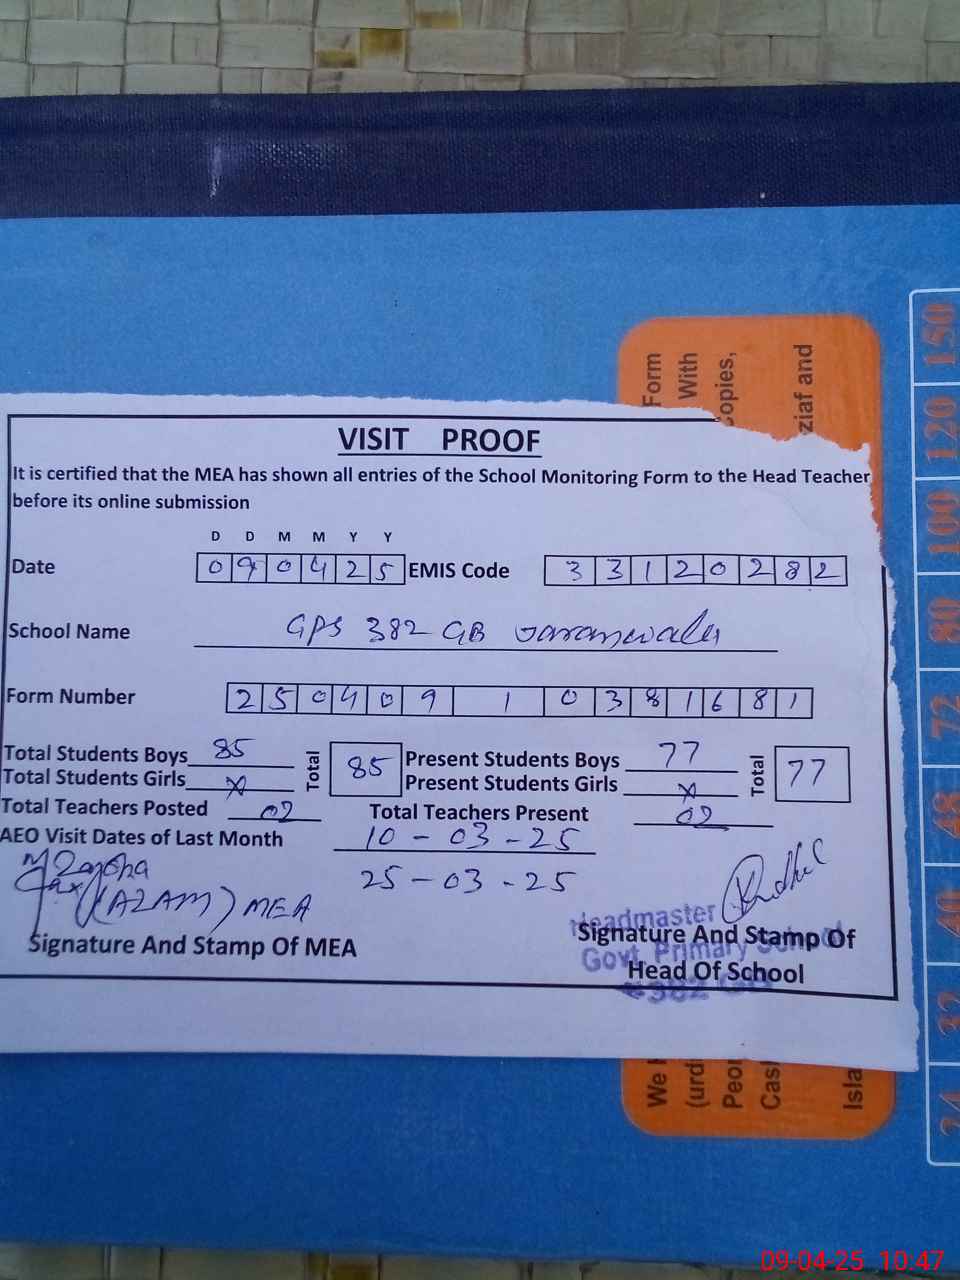 Form
With
copies,
ziaf and
150
120
100
80
72
48
40
32
24
VISIT PROOF
It is certified that the MEA has shown all entries of the School Monitoring Form to the Head Teacher
before its online submission
D D M M Y Y
Date 0 9 0 4 2 5 EMIS Code 3 3 1 2 0 2 8 2
School Name GPS 382 GB
Form Number 2 5 0 4 0 9 1 0 3 8 1 6 8 1
Total Students Boys 85 Total 85 Present Students Boys 77 Total 77
Total Students Girls x Present Students Girls x
Total Teachers Posted 02 Total Teachers Present 02
AEO Visit Dates of Last Month 10-03-25
25-03-25
(AZAM) MEA
Signature And Stamp Of MEA
Headmaster
Signature And Stamp Of
Govt. Primary School
Head Of School
382 GB
We
(urd
Peo
Cas
Isla
09-04-25 10:47